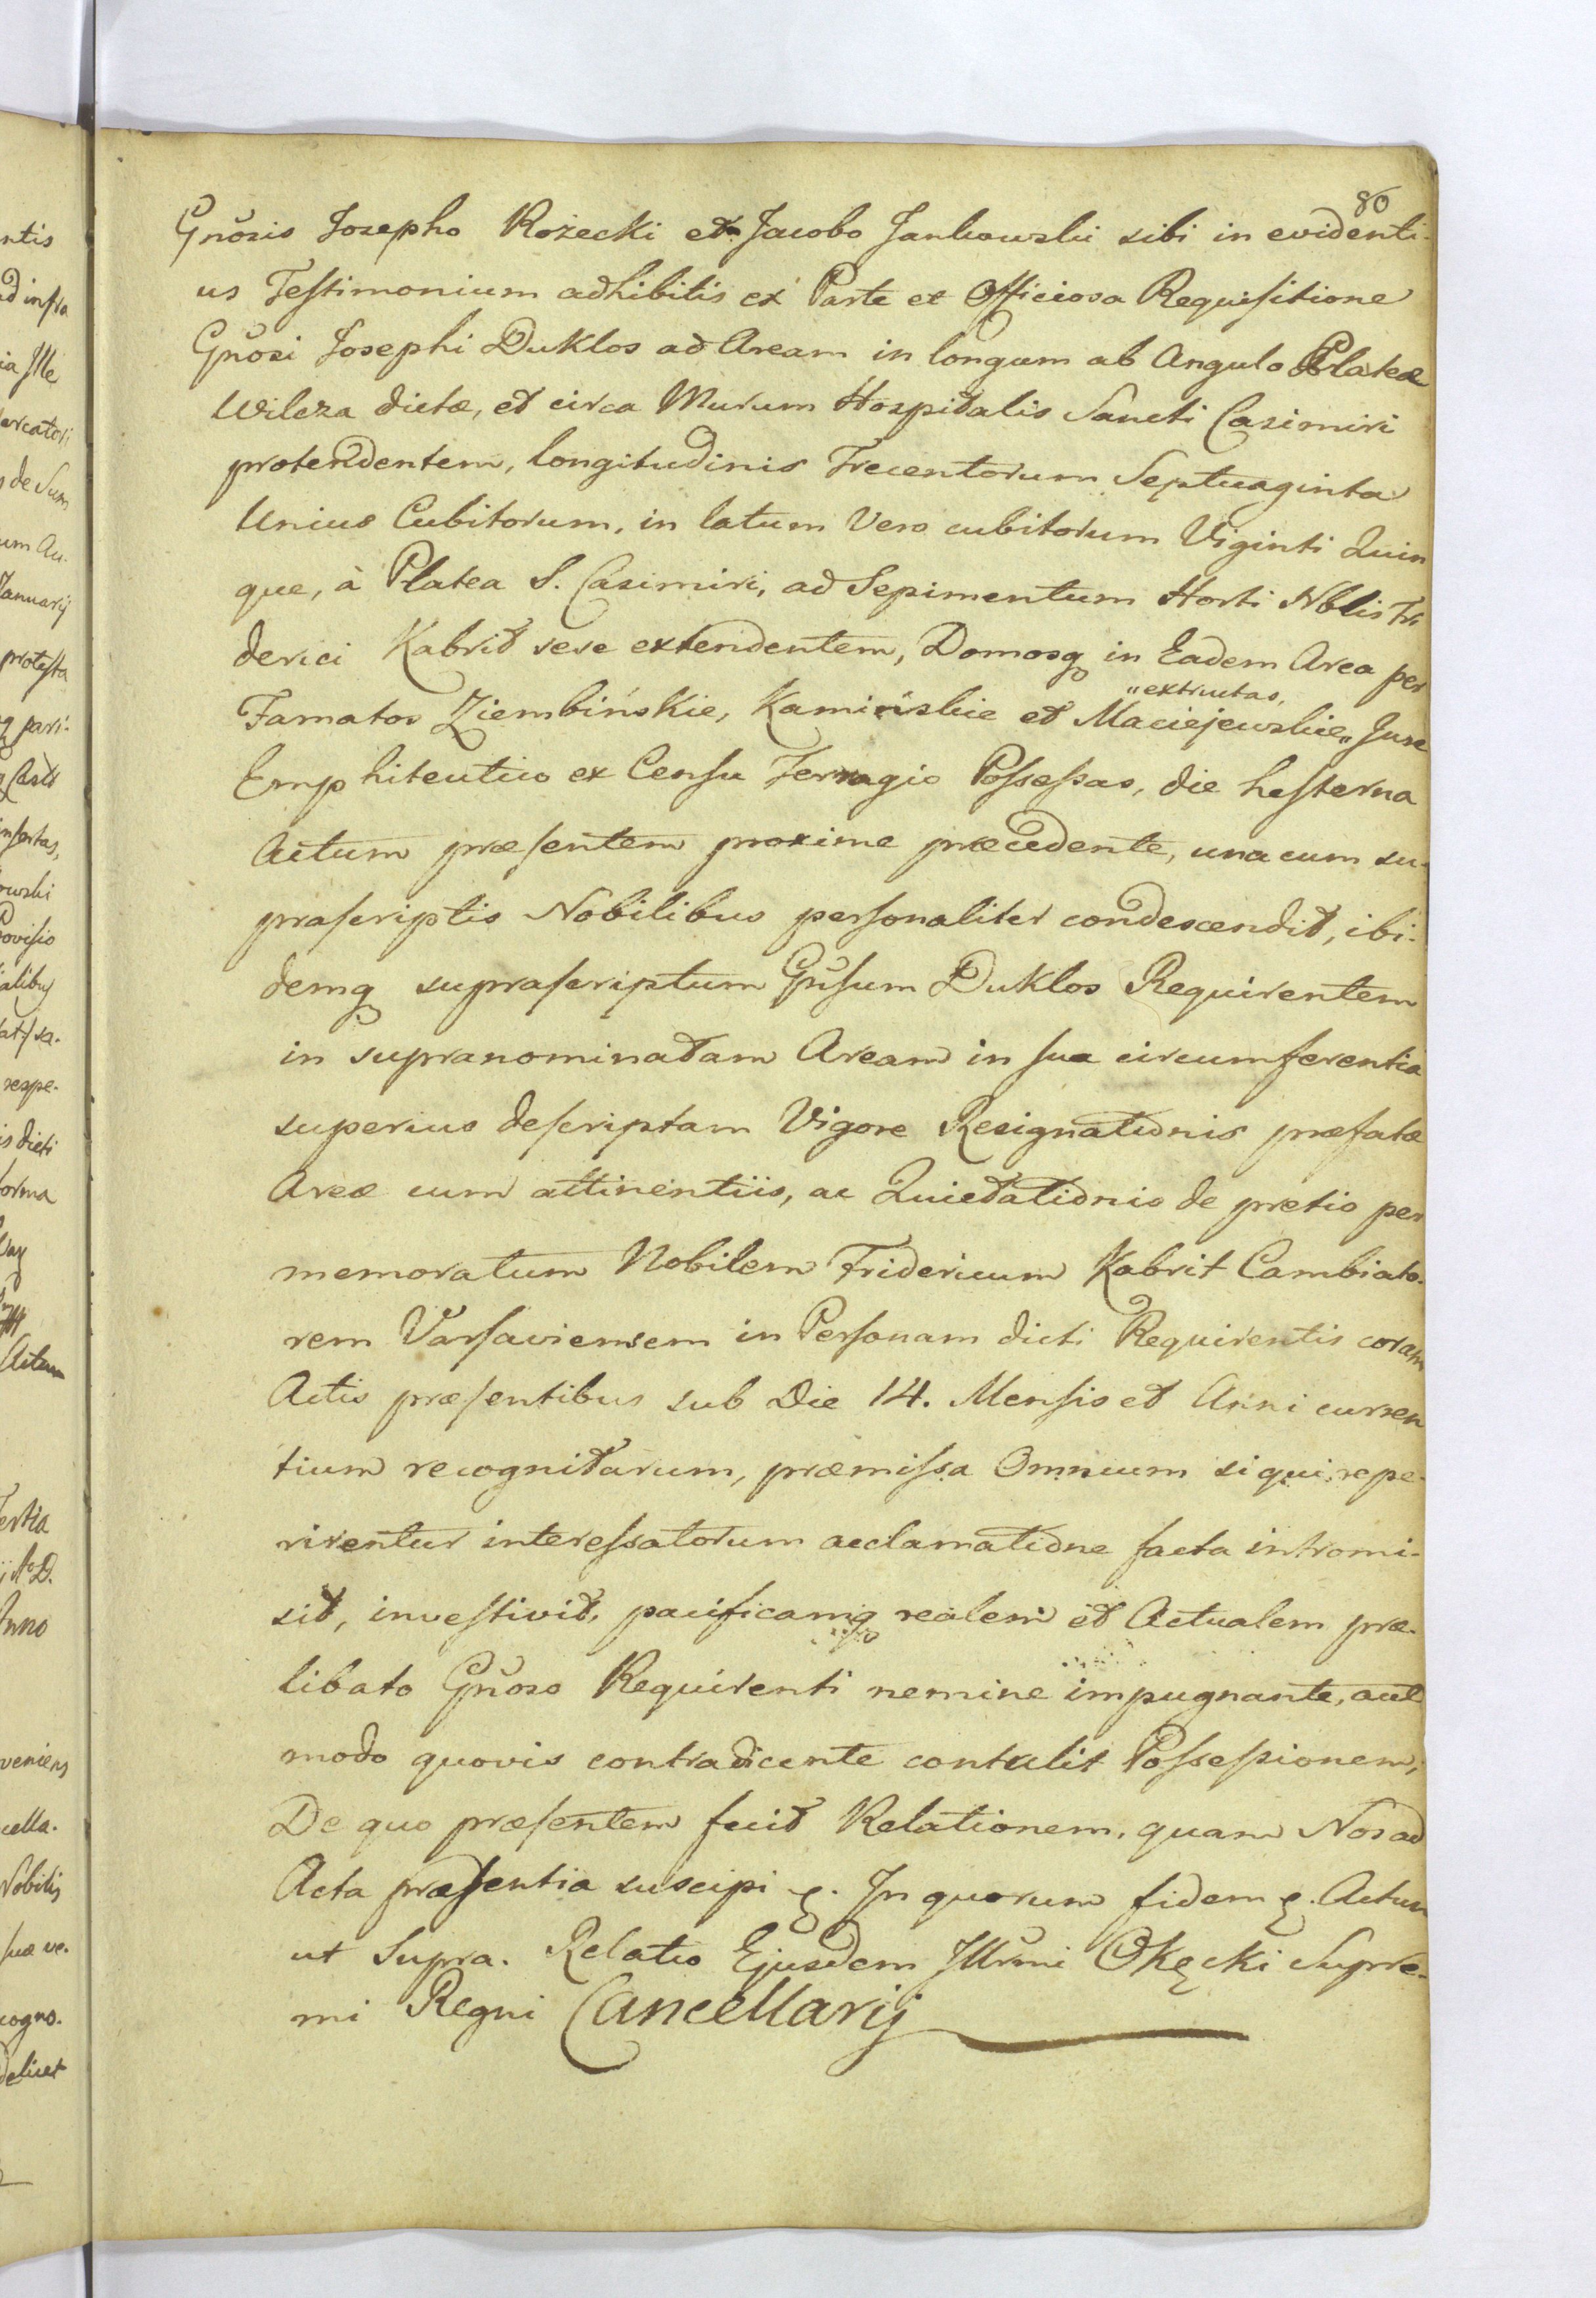 80
Gnõsis Josepho Rożecki et Jacobo Jankowski sibi in evidenti-
us Testimonium adhibitis ex Parte et Officiosa Requisitione
Gnõsi Josephi Duklos ad Aream in longum ab Angulo Plateæ
Wilcza dictæ, et circa Murum Hospitalis Sancti Casimiri
protendentem, longitudinis Trecentorum Septuaginta
Unius Cubitorum, in latum Vero cubitorum Viginti Quin
que, à Platea S. Casimiri, ad Sepimentum Horti Nblis Fri
derici Kabrit sese extendentem, Domosq in Eadem Area per
"extructas,
Famatos Ziembińskie, Kamińskie et Maciejewskie„ Jure
Emphiteutico ex Censu Terragio Possessas, die hesterna
Actum præsentem proxime præcedente, una cum su-
prascriptis Nobilibus personaliter condescendit, ibi-
demq suprascriptum Gnũsum Duklos Requirentem
in supranominatam Aream in sua circumferentia
superius descriptam Vigore Resignationis præfatæ
Areæ cum attinentiis, ac Quietationis de pretio per
memoratum Nobilem Fridericum Kabrit Cambiato-
rem Varsaviensem in Personam dicti Requirentis coram
Actis præsentibus sub Die 14. Mensis et Anni curren
tium recognitarum, præmissa Omnium si qui repe-
rirentur interessatorum acclamatione facta intromi-
sit, investivit, pacificamq realem et Actualem præ-
libato Gnõso Requirenti nemine impugnante, aut
modo quovis contradicente contulit Possessionem,
De quo præsentem fecit Relationem, quam Nos ad
Acta præsentia suscipi &. In quorum fidem &. Actum
ut Supra. Relatio Ejusdem Illrmi Okęcki Supre-
mi Regni Cancellarij
ntis
ad infra
ia Ille
ercatori
s de Sum
um Au-
Januarij
protesta
q pari-
nfertas,
owski
Provisio
alibus
respe-
is dicti
forma
Actum
ertia
Anno
veniens
cella-
Nobilis
suæ ve-
cogno-
delicet